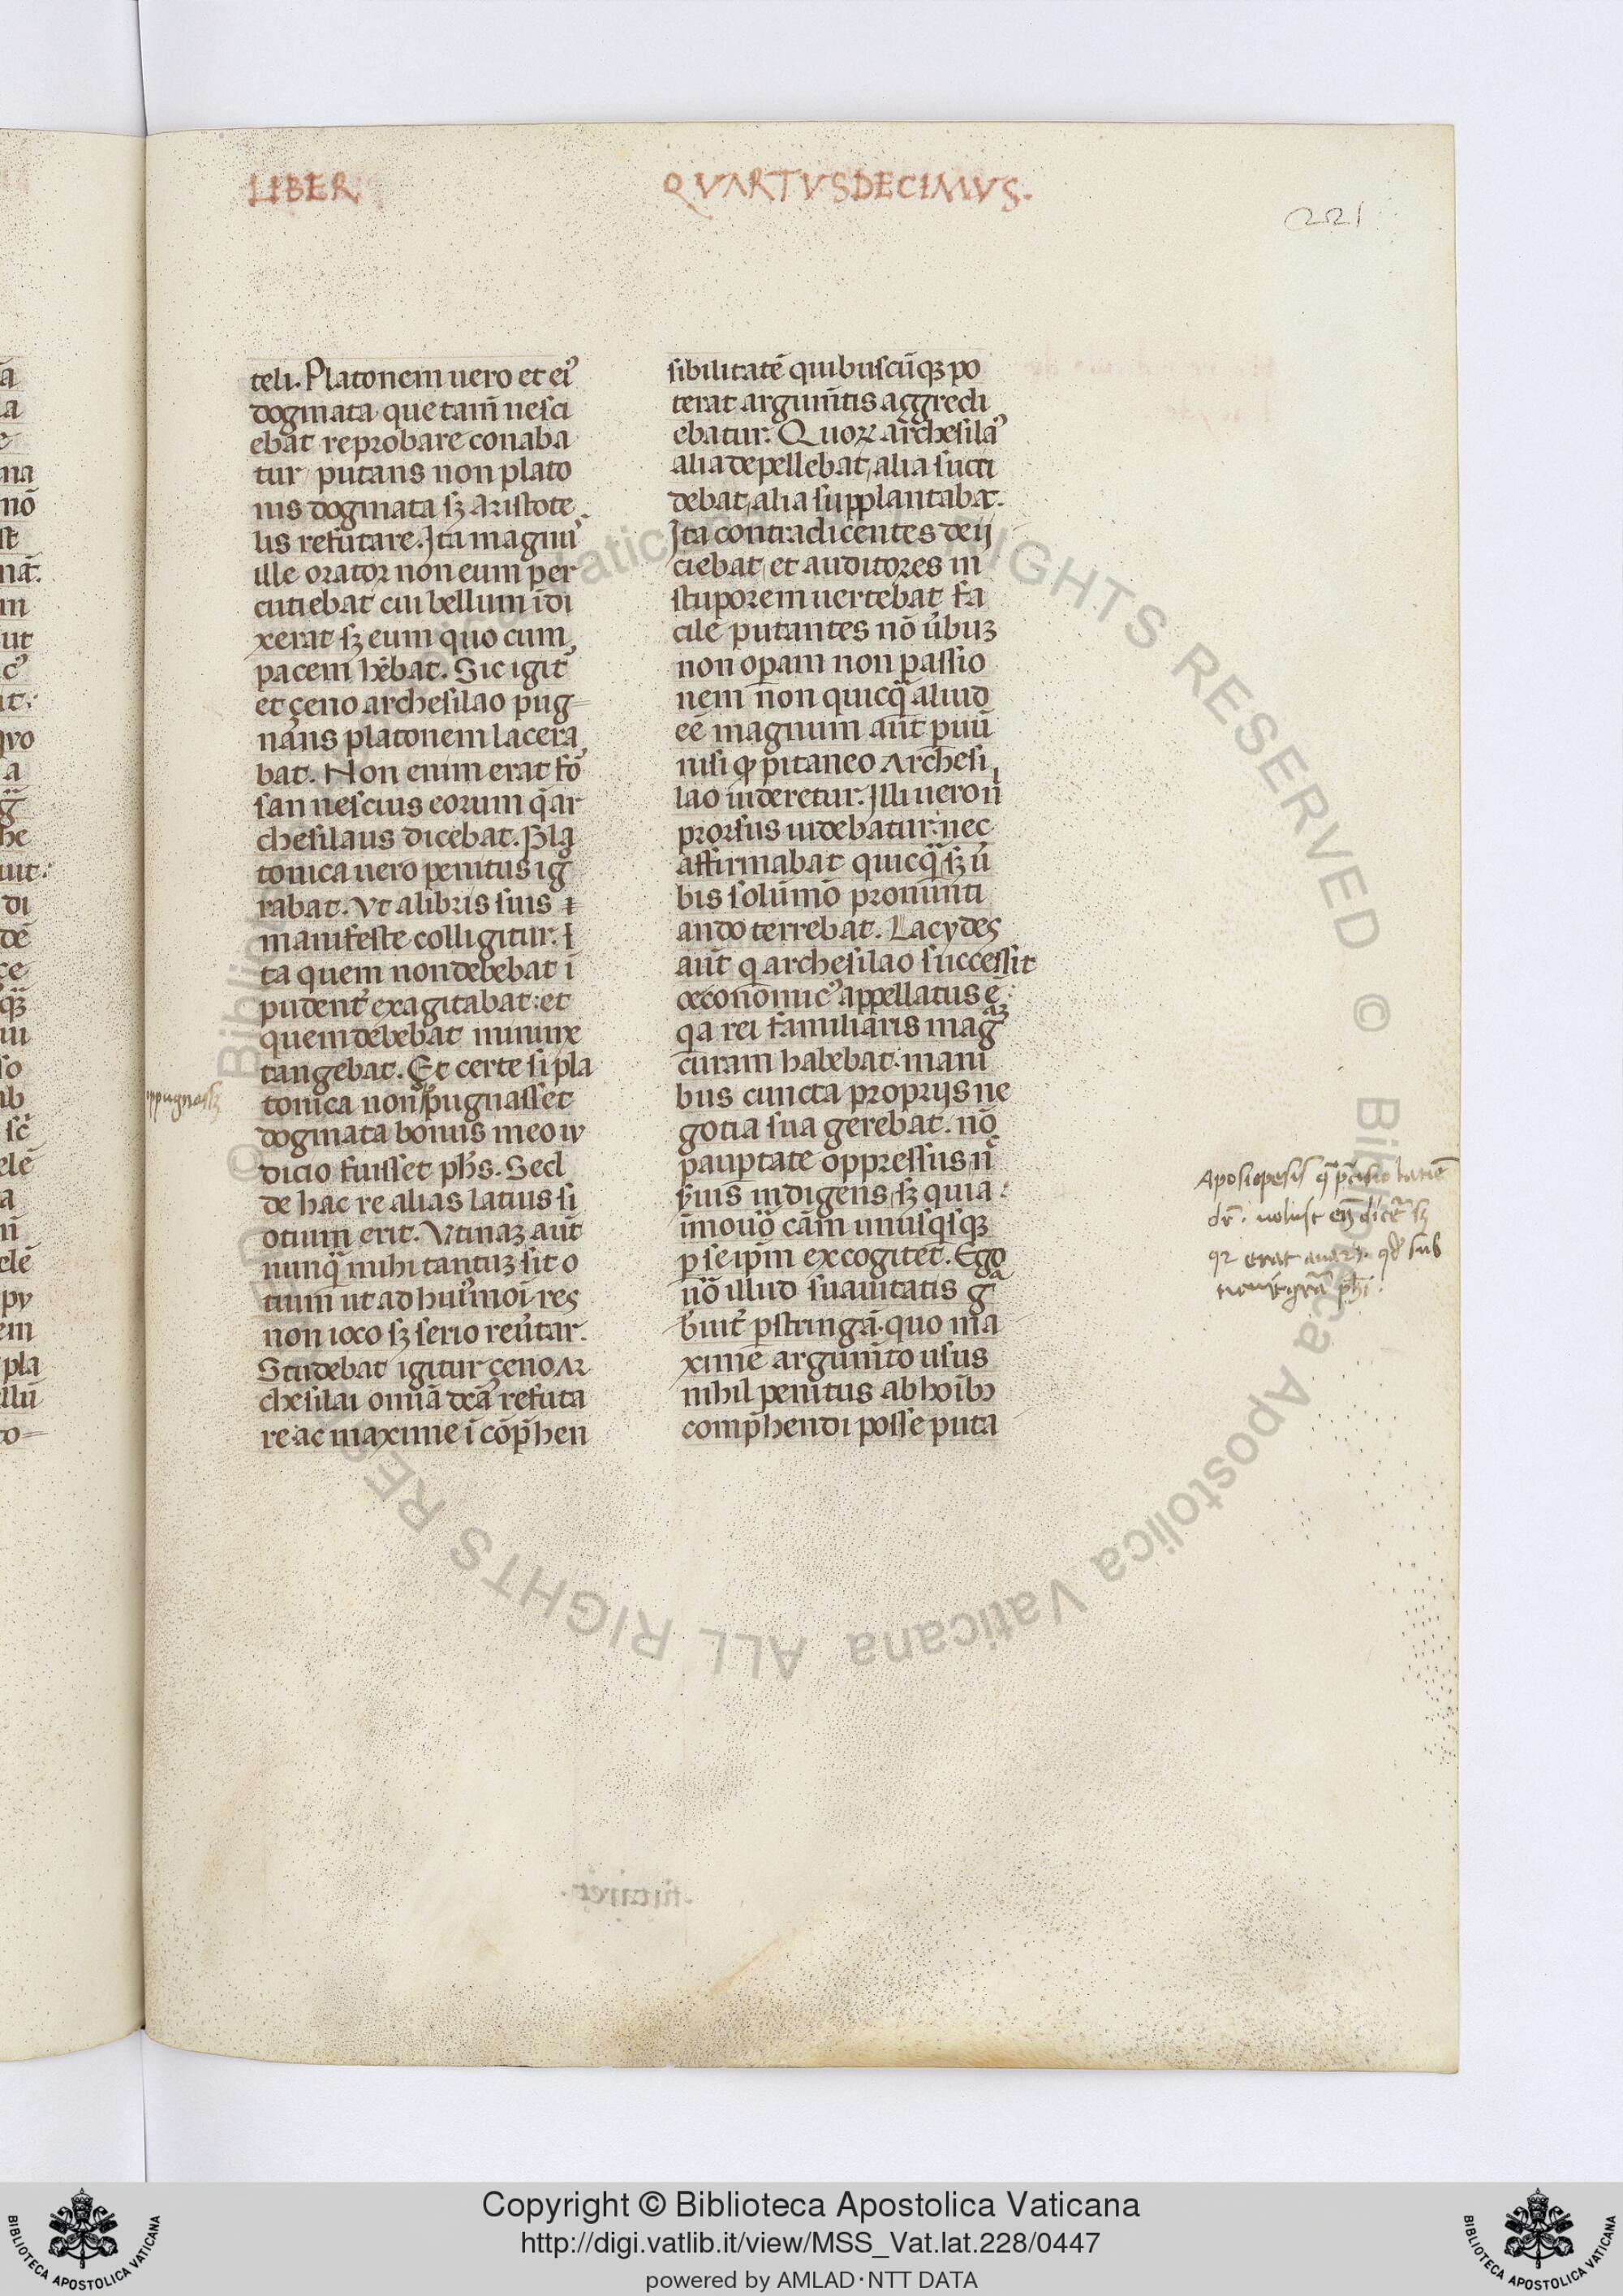 LIBER QVARTVSDECIMVS.
221
teli. Platonem uero et eiꝰ
dogmata que tam̄ nesci
ebat reprobare conaba
tur / putans non plato
nis dogmata sꝫ aristote
lis refutare. Ita magnuꝰ
ille orator non eum per
cutiebat cui bellum īdi
xerat sꝫ eum quo cum
pacem hēbat. Sic igit᷑
et çeno archesilao pug=
nans platonem lacera
bat. Non enim erat fō
san nescius eorum q̄ ar
chesilaus dicebat. Pla
tonica uero penitus igͦ
rabat. Vt a libris suis
manifeste colligitur. I
ta quem non debebat ī
pudent᷑ exagitabat: et
quem debebat minime
tangebat. Et certe si pla
tonica non īpugnasset
dogmata bonus meo iu
dicio fuisset ph̄s. Sed
de hac re alias latius si
otium erit. Vtinaꝫ aūt
nunq̄ mihi tantuꝫ sit o
tium ut ad huiꝰmoī res
non ioco sꝫ serio reūtar.
Studebat igitur çeno ar
chesilai omīa dc̄a refuta
re ac maxime ī cōp̄hen
sibilitatē quibuscūqꝫ po
terat argum̄tis aggredi
ebatur. Quoꝝ archesilaꝰ
alia depellebat, alia succi
debat, alia supplantabat.
Ita contradicentes deij
ciebat, et auditores in
stuporem uertebat fa
cile putantes nō ūbuꝫ
non oꝑam non passio
nem non quicq̄ aliud
eē magnum aūt ꝑuū
nisi ꝙ pitaneo Archesi
lao uideretur. Illi uero n̄
prorsus uidebatur: nec
affirmabat quicq̄ sꝫ ū
bis solūmō pronunti
ando terrebat. Lacydes
aūt q archesilao successit
œconomicꝰ appellatus ē:
qa rei familiaris mag̃
curam habebat. mani
bus cuncta proprijs ne
gotia sua gerebat. nō
pauꝑtate oppressus n̄
ẜuis indigens, sꝫ quia:
īmouō cām unusqsqꝫ
ꝑ se ipm̄ excogitet. Ego
uō illud suauitatis gͣ
b̄uit᷑ ꝑstringā. quo ma
xime argum̄to usus
nihil penitus ab hoībꝫ
comp̄hendi posse puta
Aposiopesis
futuret.
Copyright © Biblioteca Apostolica Vaticana
http://digi.vatlib.it/view/MSS_Vat.lat.228/0447
powered by AMLAD·NTT DATA
BIBLIOTECA APOSTOLICA VATICANA
BIBLIOTECA APOSTOLICA VATICANA
© Biblioteca Apostolica Vaticana ALL RIGHTS RESERVED